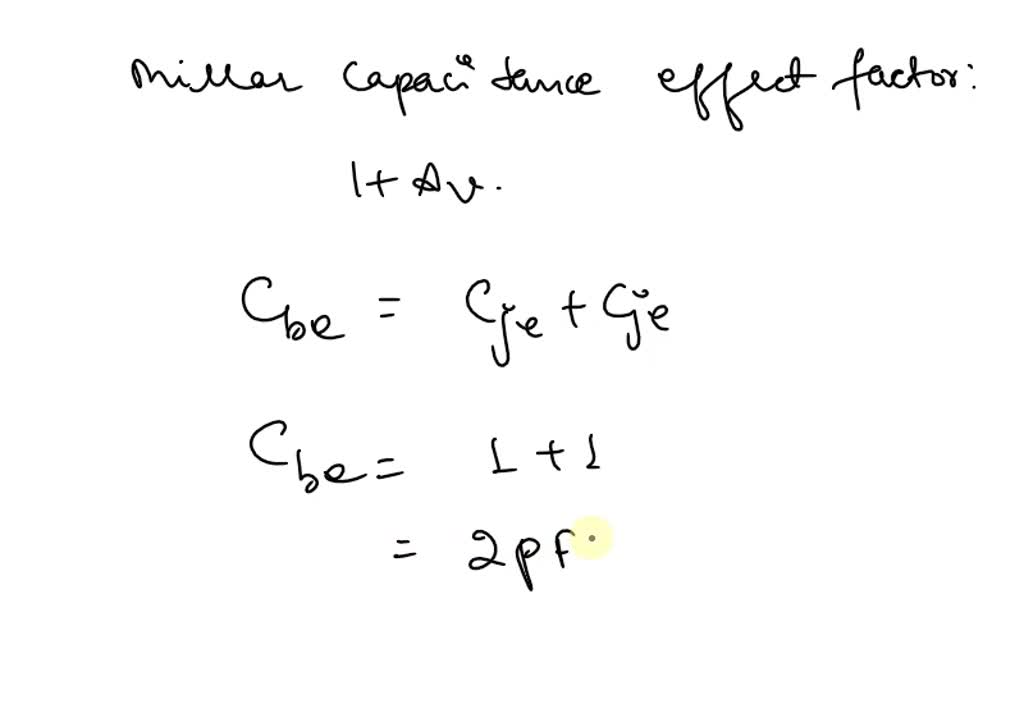 Millar Capacitance effect factor:
1+ Av.
Cbe = Cje + Cje
Cbe = 1 + 1
= 2pF